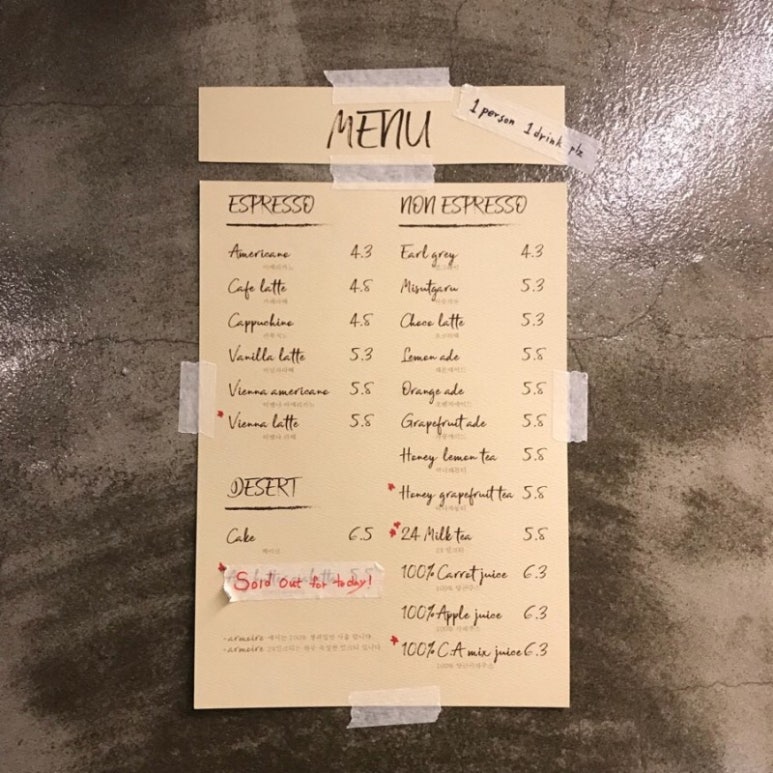 MENU
1 person 1 drink plz
ESPRESSO
Americano 4.3
아메리카노
Cafe latte 4.8
카페라떼
Cappuchino 4.8
카푸치노
Vanilla latte 5.3
바닐라라떼
Vienna americano 5.8
비엔나 아메리카노
* Vienna latte 5.8
비엔나 라떼
DESERT
Cake 6.5
케이크
* Sold out for today!
NON ESPRESSO
Earl grey 4.3
얼그레이
Misutgaru 5.3
미숫가루
Choco latte 5.3
초코라떼
Lemon ade 5.8
레몬에이드
Orange ade 5.8
오렌지에이드
Grapefruit ade 5.8
자몽에이드
Honey lemon tea 5.8
허니레몬티
* Honey grapefruit tea 5.8
허니자몽티
** 24 Milk tea 5.8
24 밀크티
100% Carrot juice 6.3
100% 당근주스
100% Apple juice 6.3
100% 사과주스
* 100% C.A mix juice 6.3
100% 당근사과주스